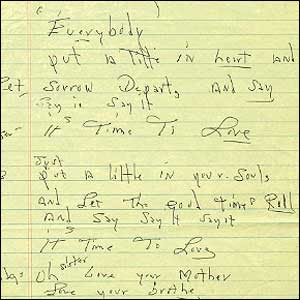 Everybody
put a little in heart and
let sorrow Depart, and say
say it say it
it's Time To Love
Just
put a little in your Souls
And Let The good Times Roll
And Say Say It Say it
it's
IT Time To Love
sister
Oh Love your Mother
Love your brothe